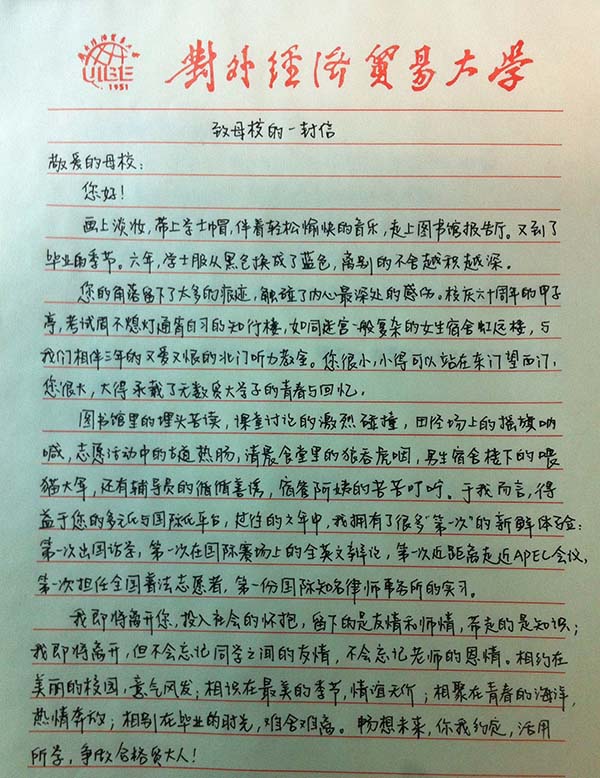 UIBE
1951
對外經濟貿易大学
致母校的一封信
敬爱的母校：
您好！
画上淡妆，带上学士帽，伴着轻松愉快的音乐，走上图书馆报告厅。又到了
毕业的季节。六年，学士服从黑色换成了蓝色，离别的不舍越积越深。
您的角落留下了太多的痕迹，触碰了内心最深处的感伤。校庆六十周年的甲子
亭，考试周不熄灯通宵自习的知行楼，如同迷宫一般复杂的女生宿舍虹远楼，与
我们相伴三年的又爱又恨的北门听力教室。您很小，小得可以站在东门望西门，
您很大，大得承载了无数贸大学子的青春与回忆。
图书馆里的埋头苦读，课堂讨论的激烈碰撞，田径场上的摇旗呐
喊，志愿活动中的古道热肠，清晨食堂里的狼吞虎咽，男生宿舍楼下的喂
猫大军，还有辅导员的循循善诱，宿管阿姨的苦苦叮咛。于我而言，得
益于您的多元化与国际化平台，过往的六年中，我拥有了很多“第一次”的新鲜体验：
第一次出国访学，第一次在国际赛场上的全英文辩论，第一次近距离走近APEC会议，
第一次担任全国普法志愿者，第一份国际知名律师事务所的实习。
我即将离开您，投入社会的怀抱，留下的是友情和师情，带走的是知识；
我即将离开，但不会忘记同学之间的友情，不会忘记老师的恩情。相约在
美丽的校园，意气风发；相识在最美的季节，情谊无价；相聚在青春的海洋，
热情奔放；相别在毕业的时光，难舍难离。畅想未来，你我约定，活用
所学，争做合格贸大人！